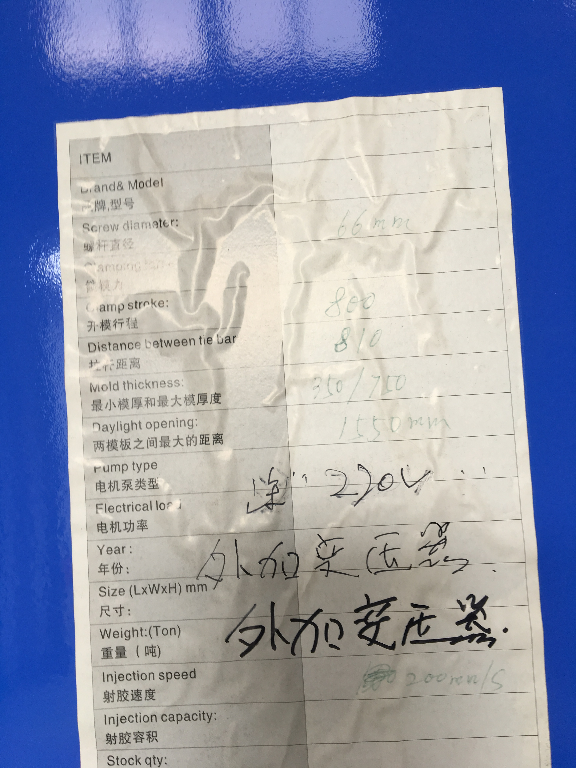 ITEM
Brand& Model
品牌,型号
Screw diamater:
螺杆直径
66mm
锁模力
Clamp stroke:
开模行程
800
Distance between tie bar
拉杆距离
810
Mold thickness:
最小模厚和最大模厚度
350/750
Daylight opening:
两模板之间最大的距离
1550mm
Pump type
电机泵类型
220V
Electrical load
电机功率
Year :
年份:
外加变压器.
Size (LxWxH) mm
尺寸:
Weight:(Ton)
重量 ( 吨)
外加变压器.
Injection speed
射胶速度
200mm/s
Injection capacity:
射胶容积
Stock qty: